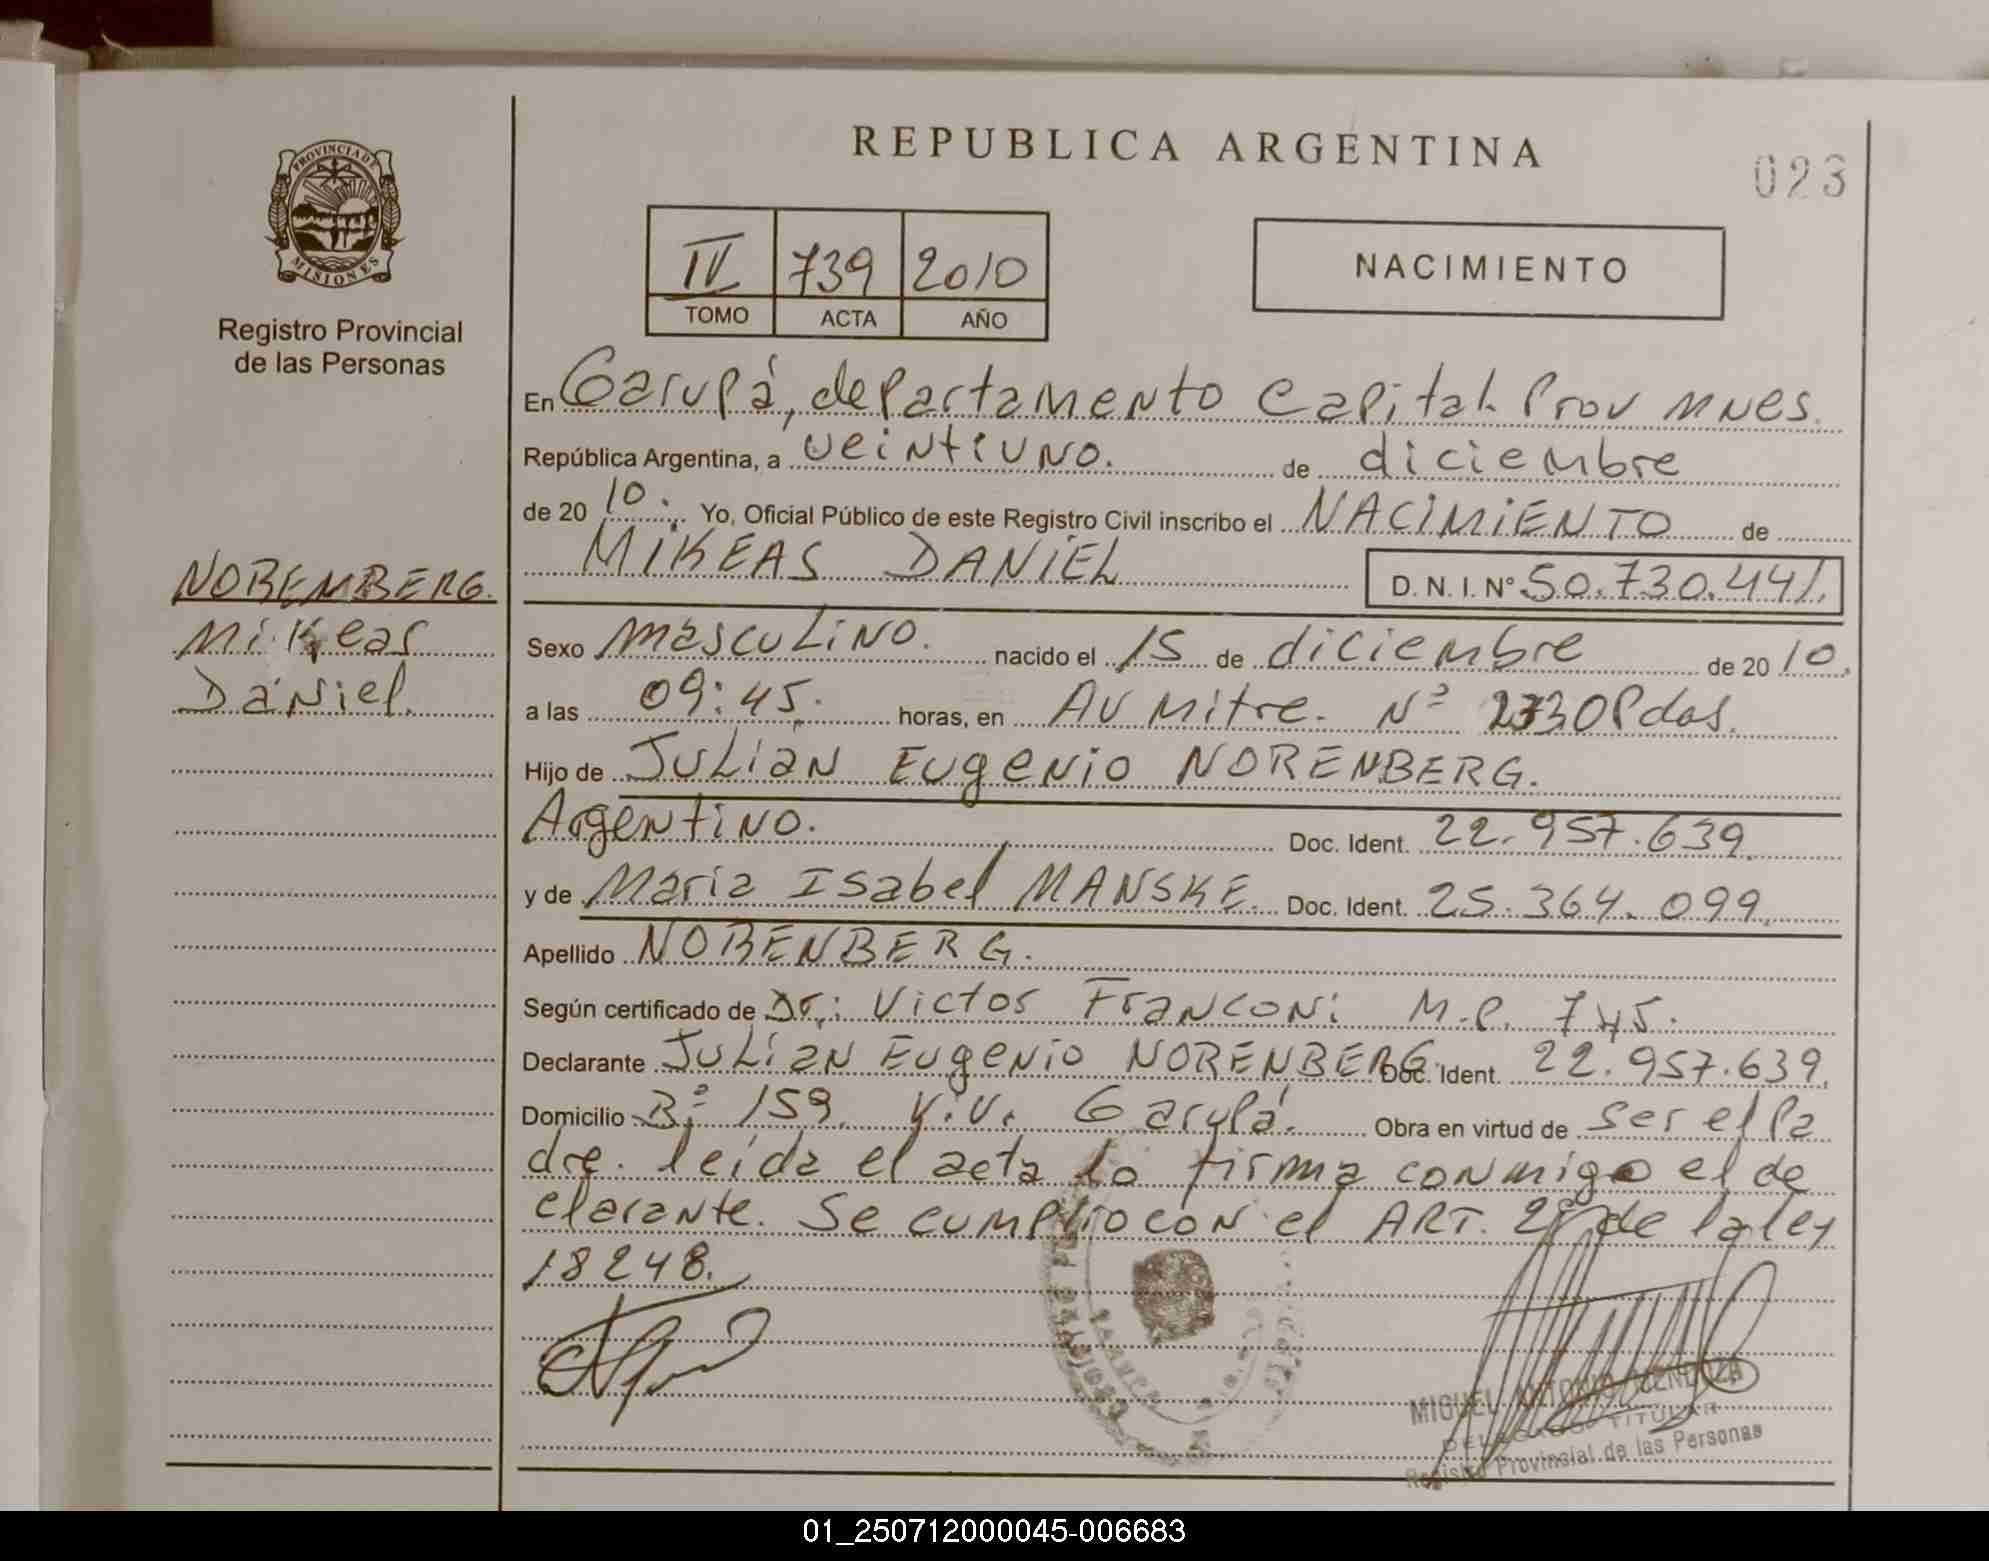 REPUBLICA ARGENTINA
023
PROVINCIA DE
MISIONES
Registro Provincial
de las Personas
IV 739 2010
TOMO ACTA AÑO
NACIMIENTO
En Garupá, departamento Capital. Prov Mnes.
República Argentina, a veintiuno. de diciembre
de 20 10. Yo, Oficial Público de este Registro Civil inscribo el NACIMIENTO de
MIKEAS DANIEL D. N. I. Nº 50.730.441.
NOREMBERG.
Mikeas
Daniel.
Sexo masculino. nacido el 15 de diciembre de 20 10.
a las 09:45. horas, en Av Mitre. Nº Pdas.
Hijo de Julian Eugenio NORENBERG.
Argentino. Doc. Ident. 22.957.639.
y de Maria Isabel MANSKE. Doc. Ident. 25.364.099.
Apellido NORENBERG.
Según certificado de Dr.: Victor Franconi M.P. 745.
Declarante Julian Eugenio NORENBERG Doc. Ident. 22.957.639.
Domicilio Bº 159. V.V. Garupá. Obra en virtud de ser el Pa
dre. leida el acta la firma conmigo el de
clarante. Se cumplio con el ART. 2º de la ley
18248.
MIGUEL ANTONIO MENDOZA
DELEGADO TITULAR
Registro Provincial de las Personas
01_250712000045-006683